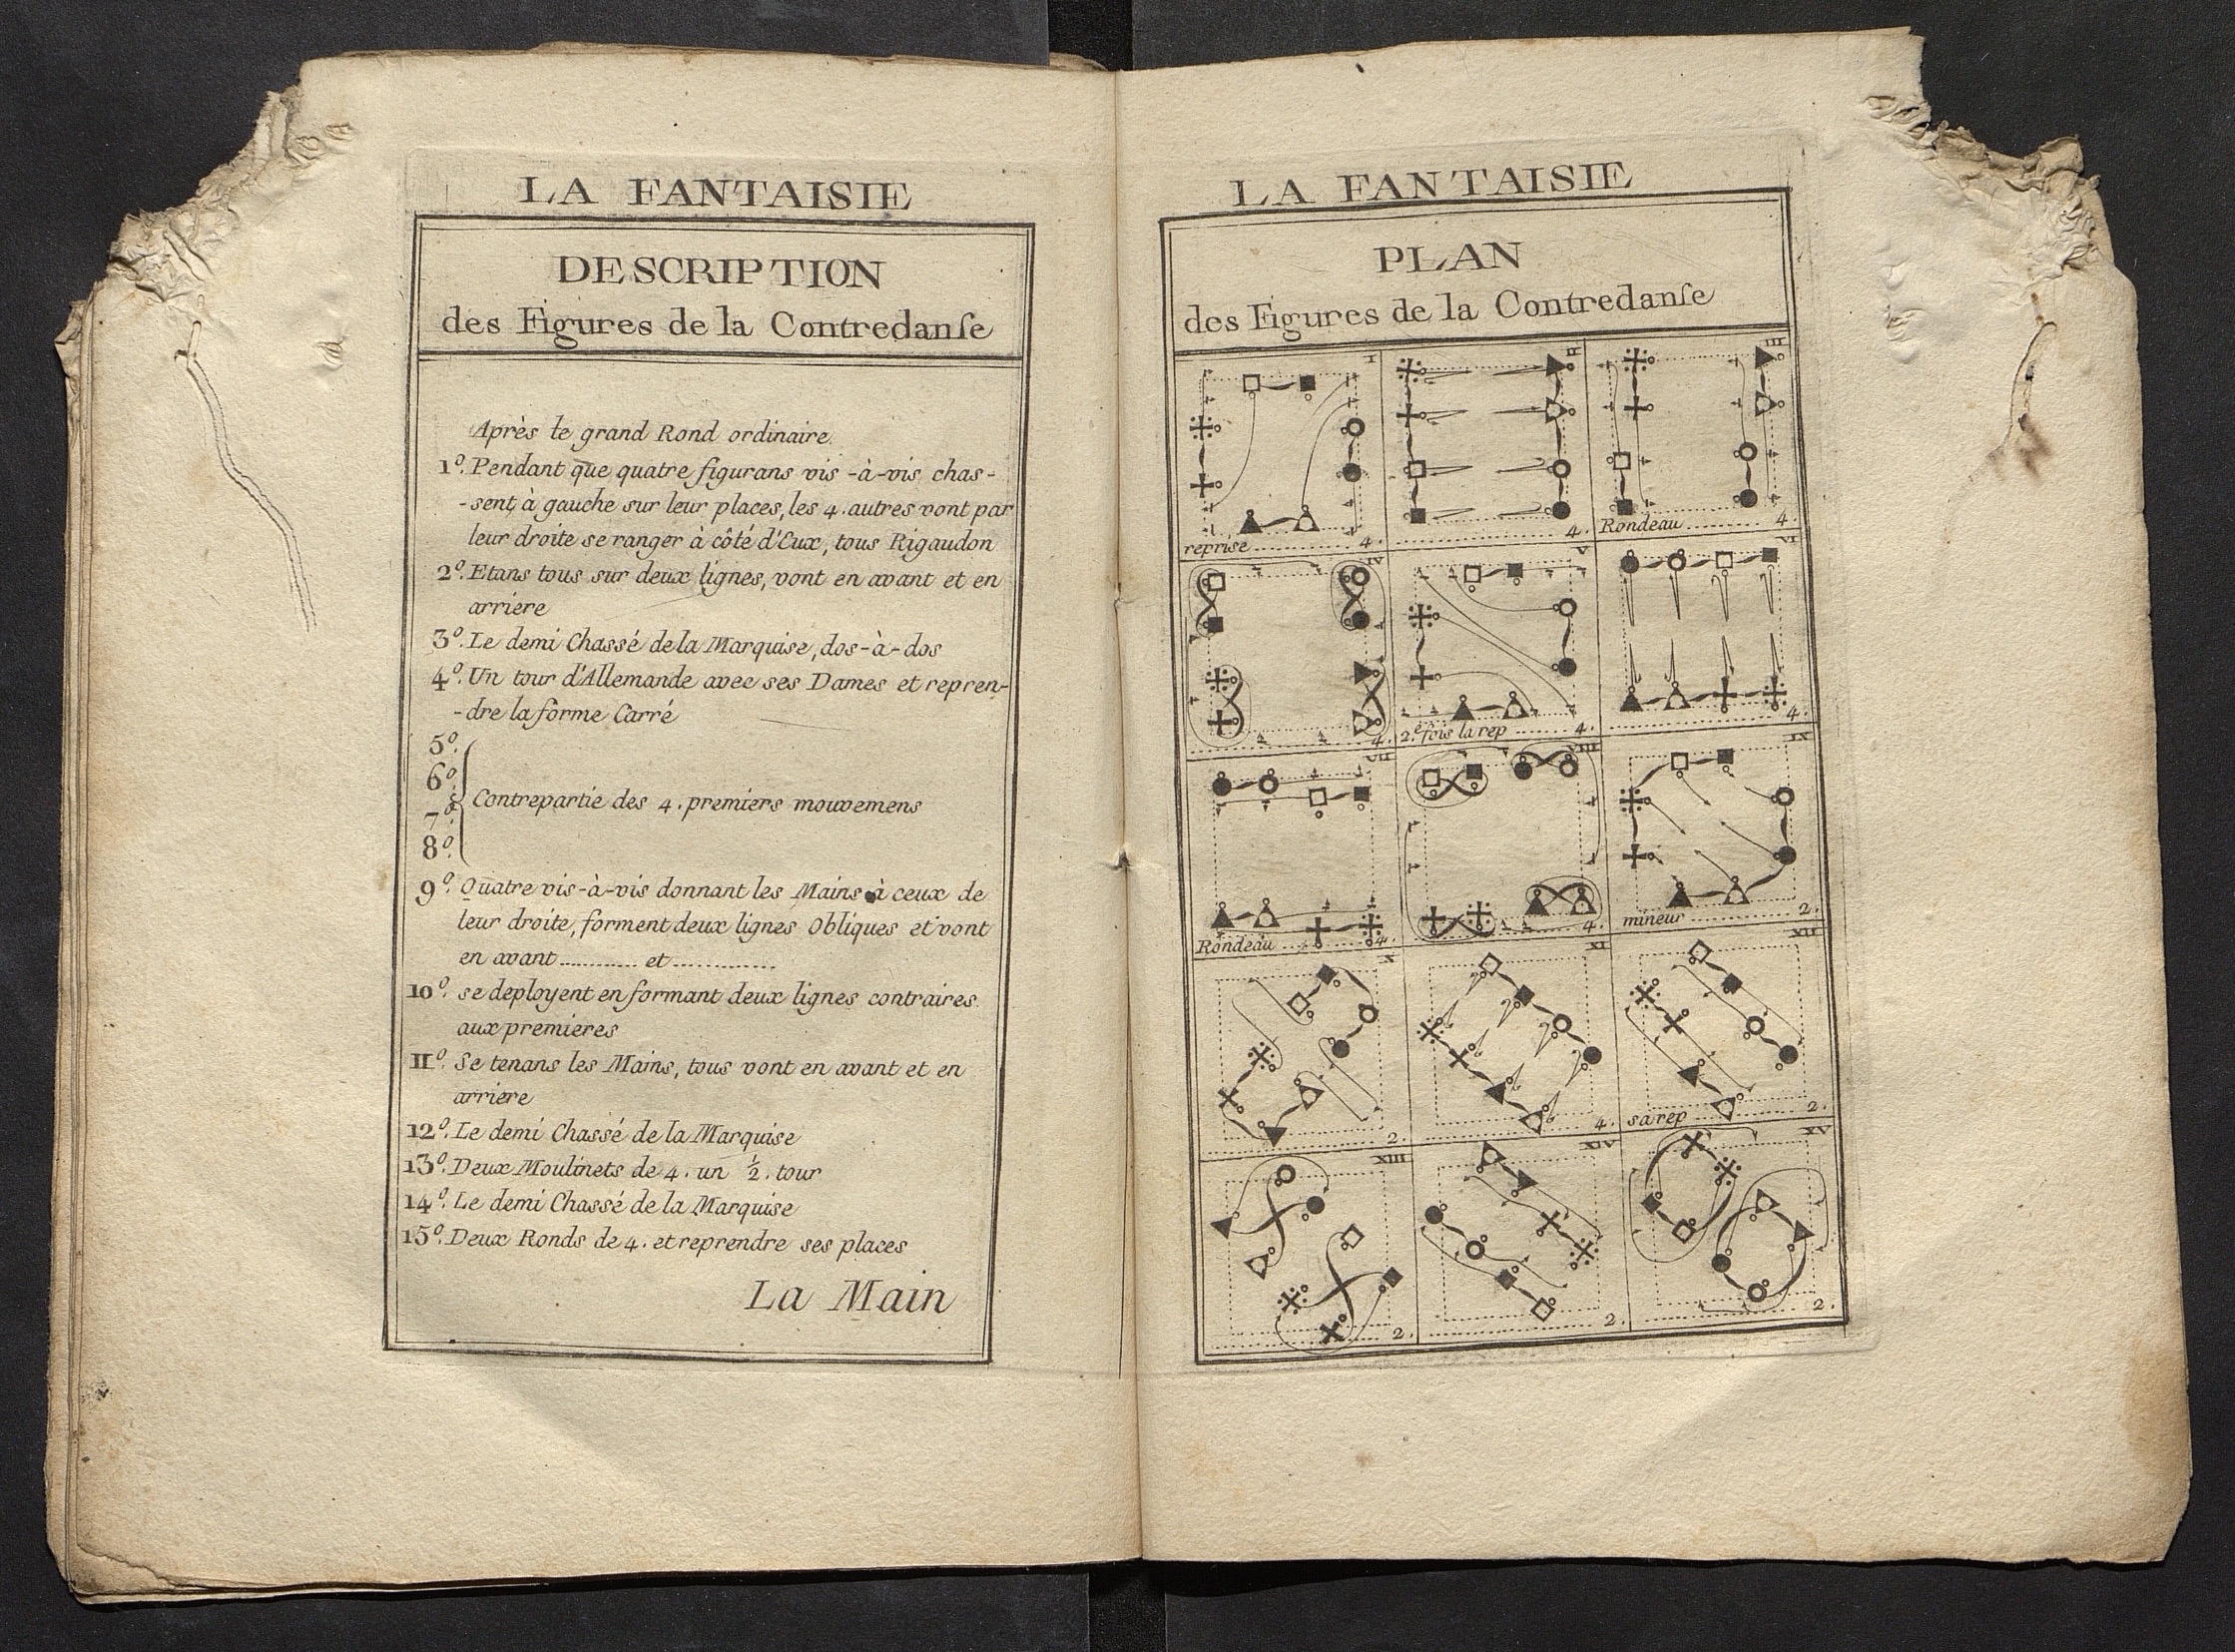 LA FANTAISIE
DESCRIPTION
des Figures de la Contredanſe
Après le grand Rond ordinaire.
1º. Pendant que quatre figurans vis-à-vis chas-
-sent à gauche sur leur places, les 4. autres vont par
leur droite se ranger à côté d'Eux, tous Rigaudon
2º. Etans tous sur deux lignes, vont en avant et en
arriere
3º. Le demi Chassé de la Marquise, dos-à-dos
4º. Un tour d'Allemande avec ses Dames et repren-
-dre la forme Carré
5º.
6º.
7º. & Contrepartie des 4. premiers mouvemens
8º.
9º. Quatre vis-à-vis donnant les Mains à ceux de
leur droite, forment deux lignes Obliques et vont
en avant ............ et ..............
10º. se deployent en formant deux lignes contraires
aux premieres
11º. Se tenans les Mains, tous vont en avant et en
arriere
12º. Le demi Chassé de la Marquise
13º. Deux Moulinets de 4. un ½. tour
14º. Le demi Chassé de la Marquise
15º. Deux Ronds de 4. et reprendre ses places
La Main
LA FANTAISIE
PLAN
des Figures de la Contredanſe
I II III
reprise 4. 4. Rondeau 4.
IV V VI
4. 2.e fois la rep 4. 4.
VII VIII IX
Rondeau 4. 4. mineur 2.
X XI XII
2. 4. sa rep 2.
XIII XIV XV
2. 2. 2.